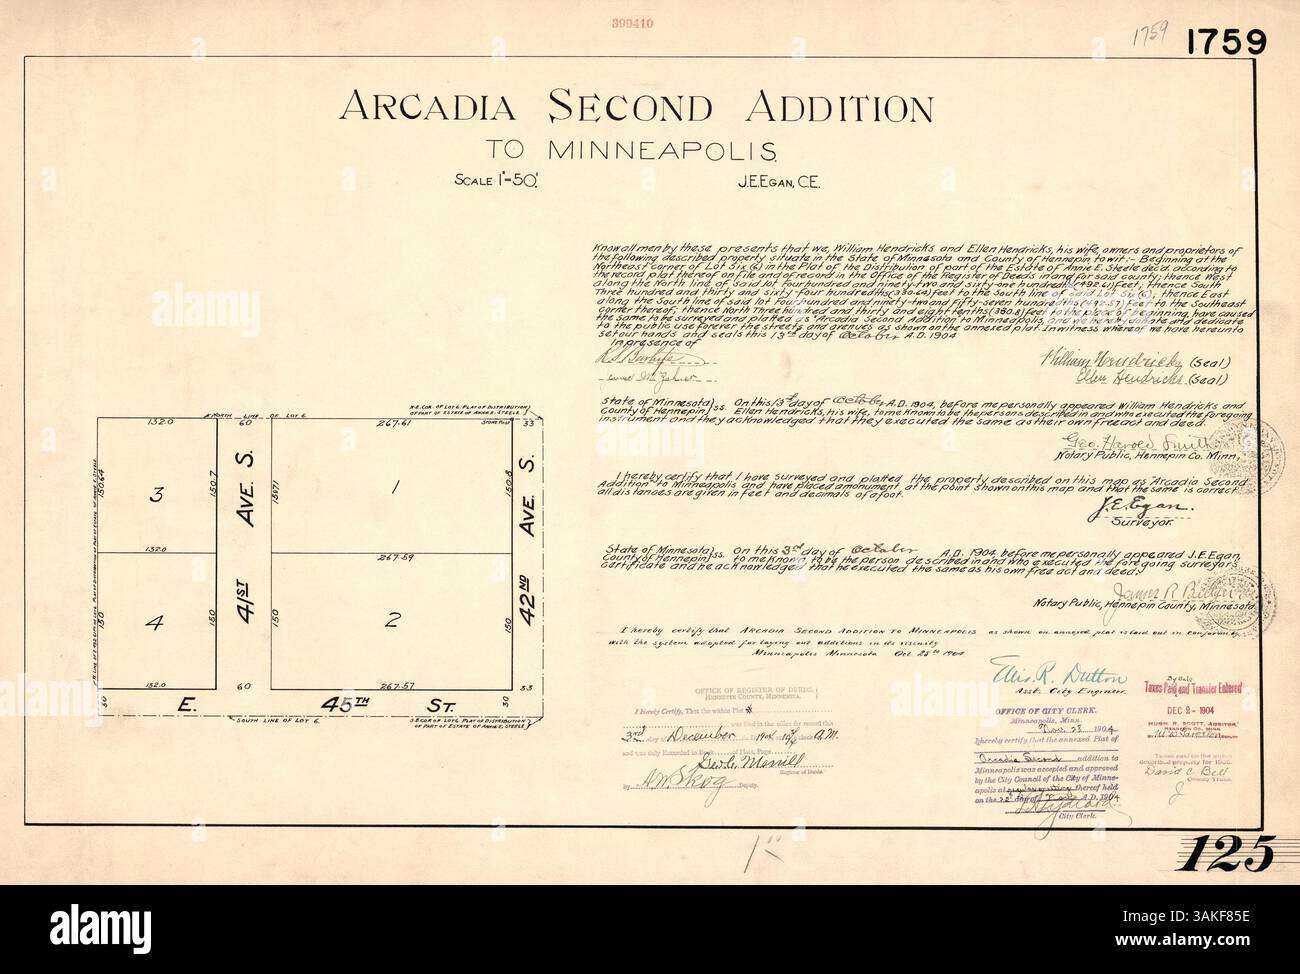 399410
1759 1759
ARCADIA SECOND ADDITION
TO MINNEAPOLIS.
SCALE 1"=50'. J.E.EGAN, C.E.
Know all men by these presents that we, William Hendricks and Ellen Hendricks, his wife, owners and proprietors of
the following described property situate in the State of Minnesota and County of Hennepin to wit:- Beginning at the
Northeast corner of Lot Six (6) in the Plat of the Distribution of part of the Estate of Annie E. Steele dec'd. according to
the record plat thereof on file and of record in the Office of the Register of Deeds in and for said county; thence West
along the North line of said lot four hundred and ninety-two and sixty-one hundredths (492.61) feet; thence South
Three hundred and thirty and sixty four hundredths (330.64) feet to the South line of said Lot Six (6); thence East
along the South line of said lot four hundred and ninety-two and fifty-seven hundredths (492.57) feet to the Southeast
corner thereof; thence North Three hundred and thirty and eight tenths (330.8) feet to the place of beginning, have caused
the same to be surveyed and platted as "Arcadia Second Addition to Minneapolis, and we hereby donate and dedicate
to the public use forever the streets and avenues as shown on the annexed plat. In witness whereof we have hereunto
set our hands and seals this 13th day of October A.D. 1904
In presence of
William Hendricks (seal)
Ellen Hendricks (seal)
State of Minnesota }ss. On this 13th day of October A.D. 1904, before me personally appeared William Hendricks and
County of Hennepin Ellen Hendricks, his wife, to me known to be the persons described in and who executed the foregoing
instrument and they acknowledged that they executed the same as their own free act and deed.
Geo. Harold Smith
Notary Public, Hennepin Co. Minn.
I hereby certify that I have surveyed and platted the property described on this map as Arcadia Second
Addition to Minneapolis and have placed a monument at the point shown on this map and that the same is correct
all distances are given in feet and decimals of a foot.
J. E. Egan.
Surveyor.
State of Minnesota }ss. On this 3rd day of October A.D. 1904, before me personally appeared J.E. Egan,
County of Hennepin to me known to be the person described in and who executed the foregoing surveyor's
certificate and he acknowledged that he executed the same as his own free act and deed.
James R.
Notary Public, Hennepin County, Minnesota
I hereby certify that ARCADIA SECOND ADDITION TO MINNEAPOLIS as shown on annexed plat is laid out in conformity
with the system adopted for laying out additions in its vicinity
Minneapolis Minnesota Oct. 28th 1904
Ellis R. Dutton
Asst. City Engineer.
N.E. COR. OF LOT 6. PLAT OF DISTRIBUTION
OF PART OF ESTATE OF ANNIE E. STEELE
NORTH LINE OF LOT 6
132.0 60 267.61 33
STONE POST
3 1
150.64 150.7 150.71 150.8
41ST AVE. S. 42ND AVE. S.
132.0 267.59
4 2
150 150 150 150
132.0 60 267.57 33
30 30
E. 45TH ST.
SOUTH LINE OF LOT 6.
S.E. COR OF LOT 6. PLAT OF DISTRIBUTION
OF PART OF ESTATE OF ANNIE E. STEELE
OFFICE OF REGISTER OF DEEDS,
HENNEPIN COUNTY, MINNESOTA.
I Hereby Certify, That the within Plat
was filed in this office for record this
3rd day of December 1904 at o'clock A.M.
and was duly Recorded in Book of Plats, Page
Geo. C. Merrill
Register of Deeds.
By A.W. Skog Deputy.
OFFICE OF CITY CLERK.
Minneapolis, Minn.
Nov. 28 1904
I hereby certify that the annexed Plat of
Arcadia Second addition to
Minneapolis was accepted and approved
by the City Council of the City of Minne-
apolis at regular meeting thereof held
on the day of A.D. 1904.
City Clerk.
Taxes Paid and Transfer Entered
DEC 2 - 1904
HUGH R. SCOTT, AUDITOR,
HENNEPIN CO. MINN.
David C. Bell
County Treas.
125
alamy
Image ID: 3AKF85E
www.alamy.com